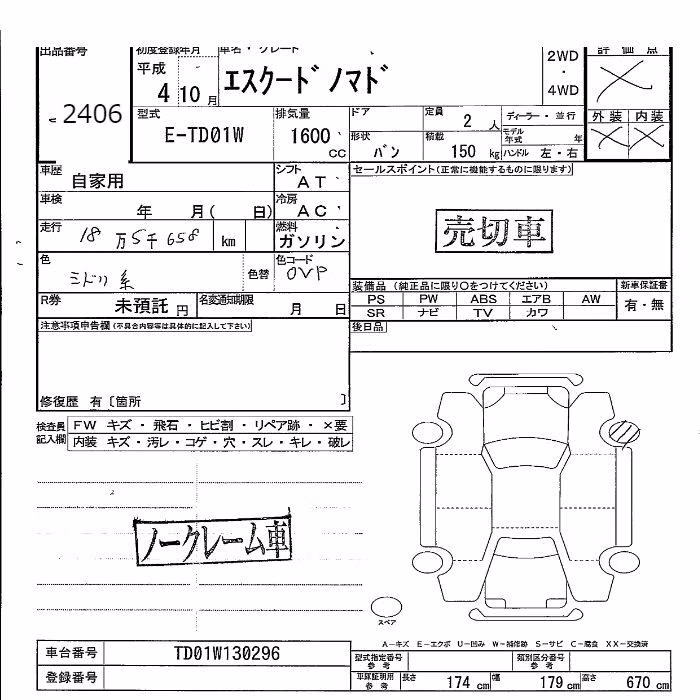 出品番号 初度登録年月 車名・グレード 2WD 評価点
2406 平成 4 10月 エスクードノマド ・ ×
4WD
型式 排気量 ドア 定員 2人 ディーラー・並行 外装 内装
E-TD01W 1600 CC 形状 バン 積載 150kg モデル年式 年 × ×
ハンドル 左・右
車歴 自家用 シフト AT セールスポイント(正常に機能するものに限ります)
車検 年 月( 日) 冷房 AC
走行 18万5千658 km 燃料 ガソリン 売切車
色 ミドリ系 色替 色コード 0VP
装備品 (純正品に限り○をつけてください) 新車保証書
R券 未預託 円 名変通知期限 月 日 PS PW ABS エアB AW 有・無
SR ナビ TV カワ
注意事項申告欄(不具合内容等は具体的に記入して下さい) 後日品
修復歴 有〔箇所 〕
検査員 FW キズ・飛石・ヒビ割・リペア跡・×要
記入欄 内装 キズ・汚レ・コゲ・穴・スレ・キレ・破レ
ノークレーム車
スペア
A-キズ E-エクボ U-凹み W-補修跡 S-サビ C-腐食 XX-交換済
車台番号 TD01W130296 型式指定番号 参考 類別区分番号 参考
登録番号 車庫証明用 参考 長さ 174cm 幅 179cm 高さ 670cm